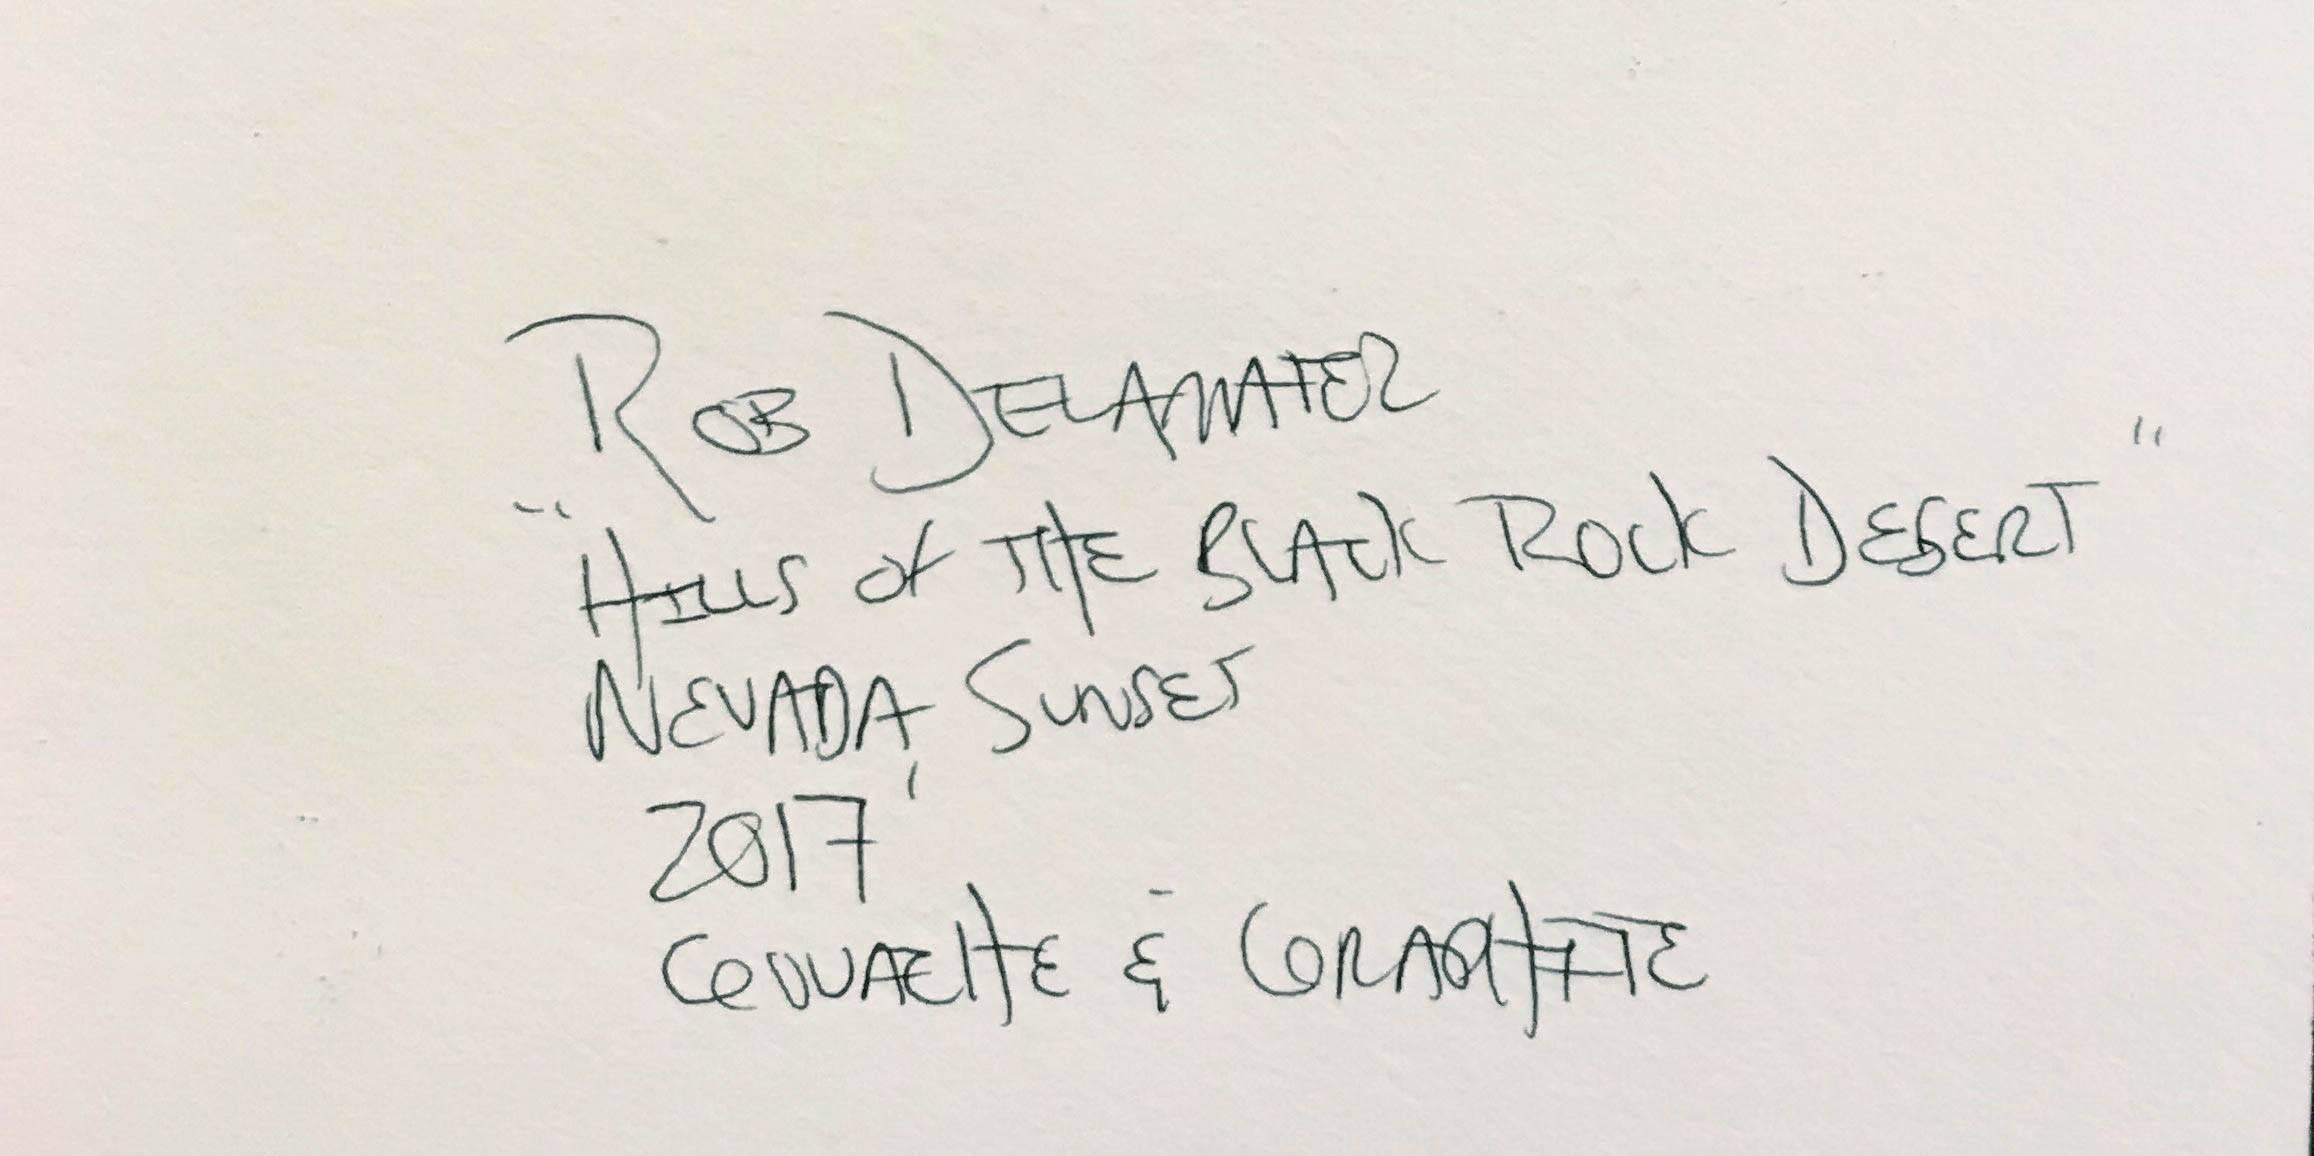 ROB DELAWATER
"HILLS OF THE BLACK ROCK DESERT"
NEVADA, SUNSET
2017
GOUUACHE & GRAPHITE